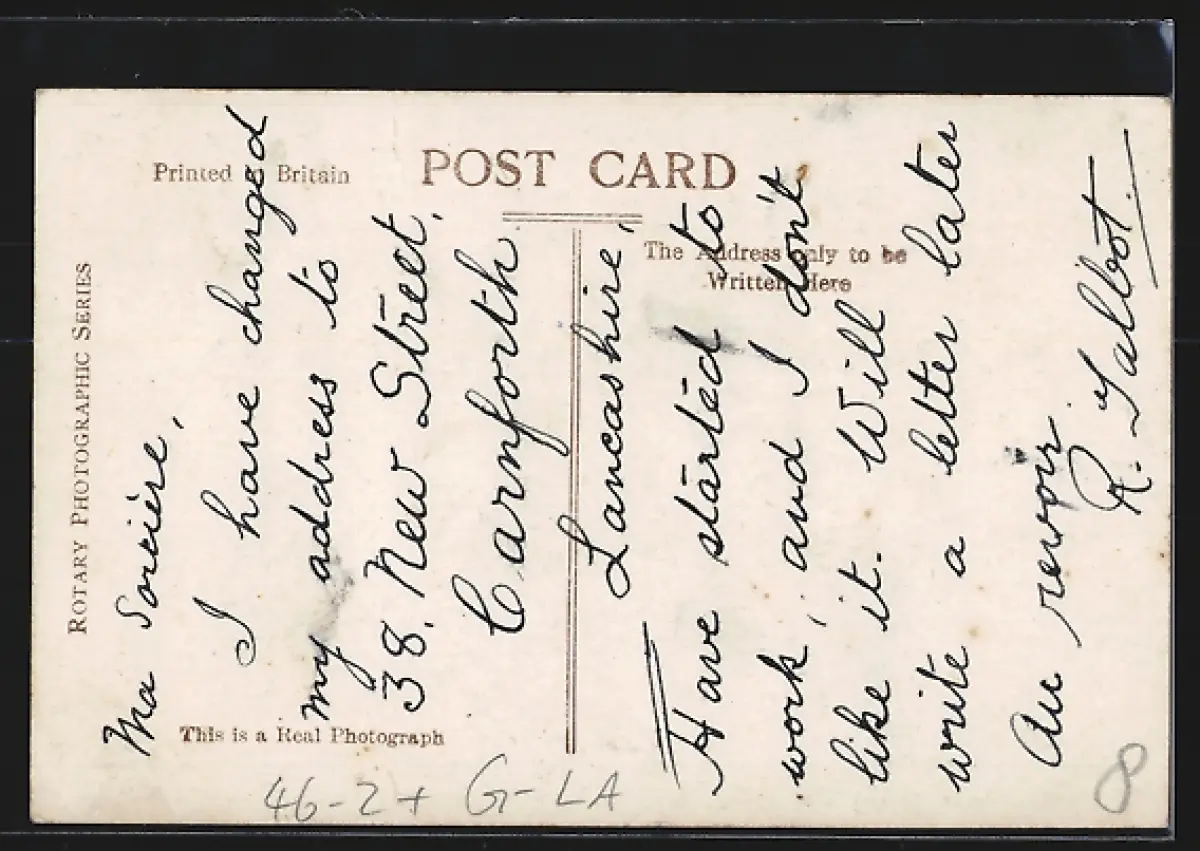 POST CARD
Printed in Britain
The Address only to be
Written Here
ROTARY PHOTOGRAPHIC SERIES
This is a Real Photograph
Ma Sorcière,
I have changed
my address to
38, New Street,
Carnforth
Lancashire,
Have started to
work, and I don't
like it. Will
write a letter later
Au revoir
R. Talbot.
46-2+ G-LA
8